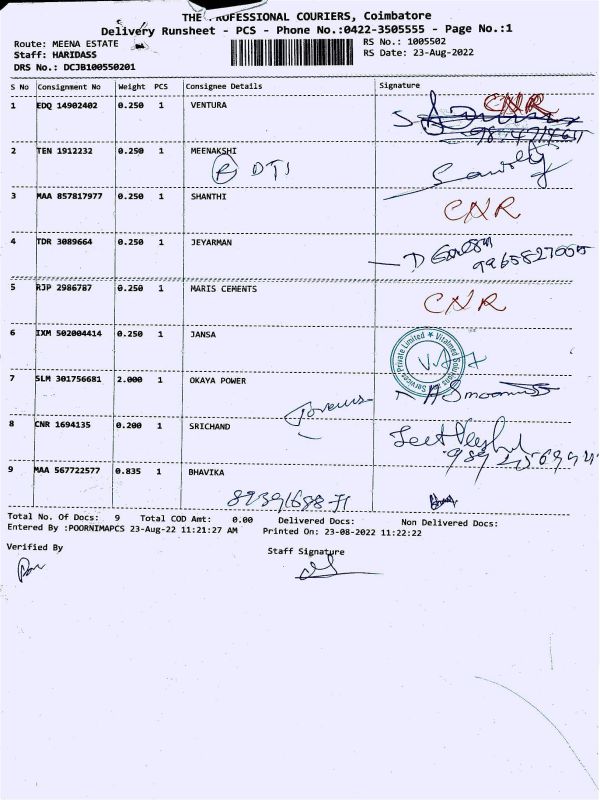 THE PROFESSIONAL COURIERS, Coimbatore
Delivery Runsheet - PCS - Phone No.:0422-3505555 - Page No.:1
Route: MEENA ESTATE
RS No.: 1005502
Staff: HARIDASS
RS Date: 23-Aug-2022
DRS No.: DCJB100550201
S No Consignment No Weight PCS Consignee Details Signature
1 EDQ 14902402 0.250 1 VENTURA CNR
2 TEN 1912232 0.250 1 MEENAKSHI
R DTS
3 MAA 857817977 0.250 1 SHANTHI CNR
4 TDR 3089664 0.250 1 JEYARMAN
9965827005
5 RJP 2986787 0.250 1 MARIS CEMENTS CNR
6 IXM 502004414 0.250 1 JANSA
Vitalmed Solutions & Services Private Limited ★
7 SLM 301756681 2.000 1 OKAYA POWER
8 CNR 1694135 0.200 1 SRICHAND
9 MAA 567722577 0.835 1 BHAVIKA
Total No. Of Docs: 9 Total COD Amt: 0.00 Delivered Docs: Non Delivered Docs:
Entered By :POORNIMAPCS 23-Aug-22 11:21:27 AM Printed On: 23-08-2022 11:22:22
Verified By Staff Signature